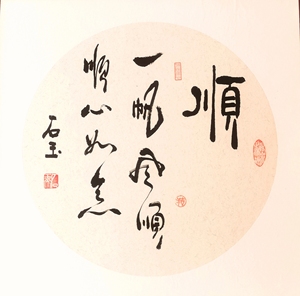 順
一帆风順
順心如意
石玉